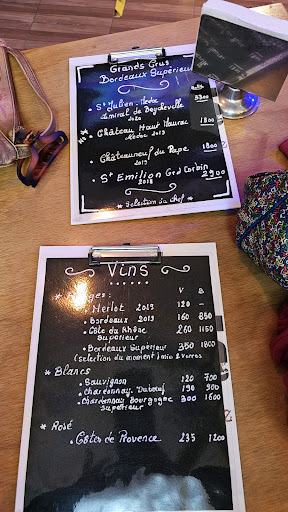 Grands Crus
Bordeaux Supérieur
• St Julien - Medoc 3300
Amiral de Beychevelle
2020
Château Haut Maurac 1800
Medoc 2013
• Châteauneuf du Pape 1800
2019
• St Emilion Grd Corbin 2900
2018
* Sélection du chef *
Vins
* Rouges: V B
• Merlot 2013 120 -
• Bordeaux 2013 160 850
• Côte du Rhône 260 1150
Supérieur
• Bordeaux Supérieur 350 1800
(Selection du moment) min 2 verres
* Blancs
• Sauvignon 120 700
• Chardonnay Duboeuf 190 900
• Chardonnay Bourgogne 300 1600
Supérieur
* Rosé
• Côtes de Provence 235 1200